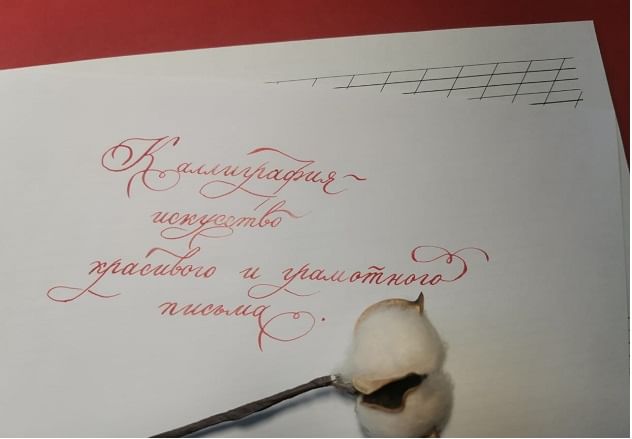 Каллиграфия-
искусство
красивого и грамотного
письма.